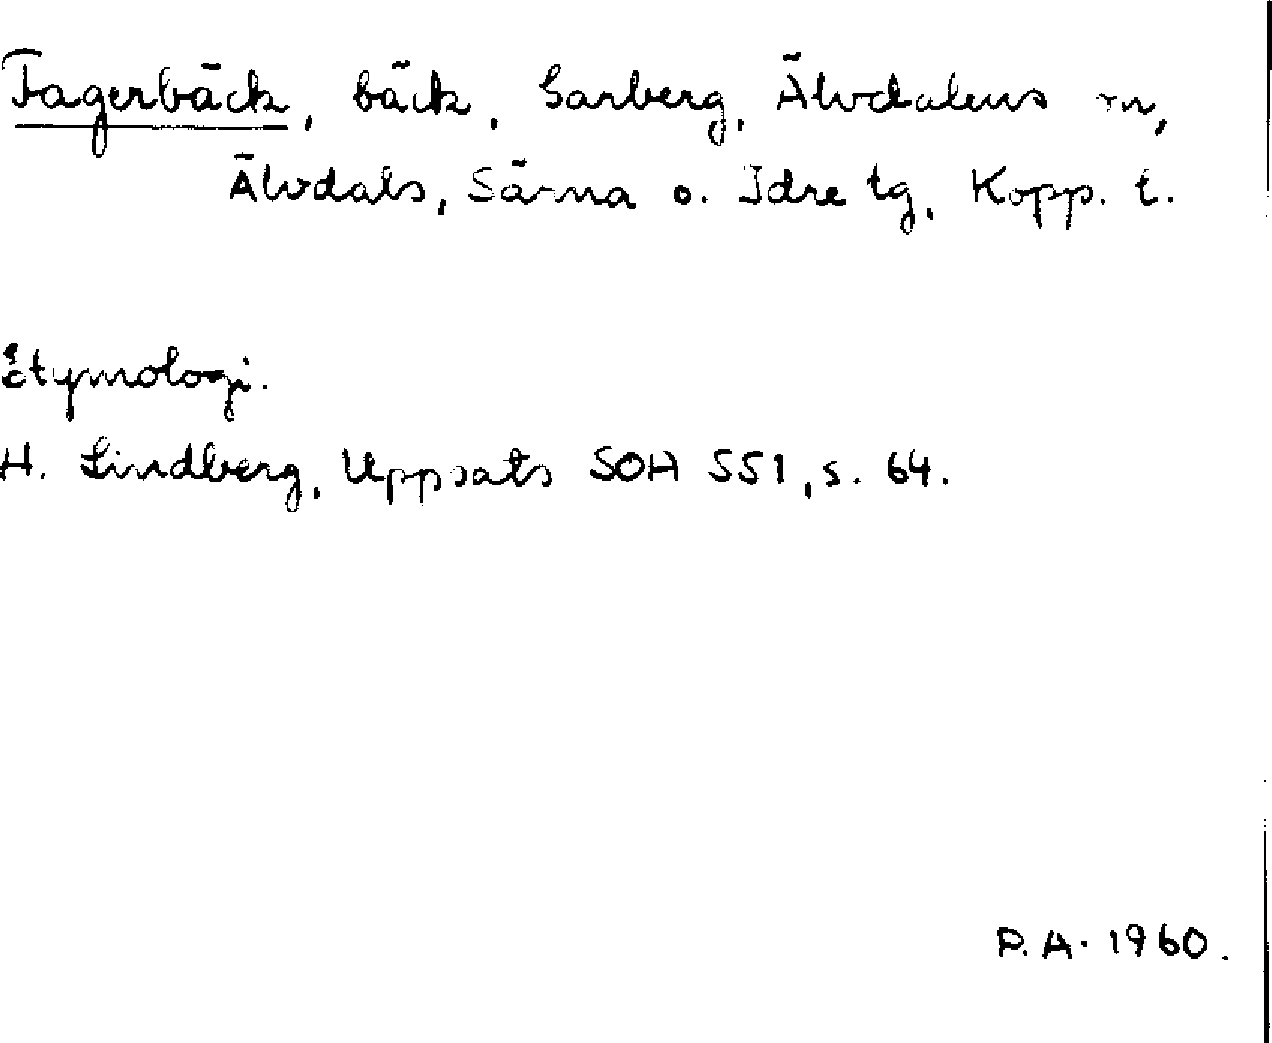 Fagerbäck, bäck, Garberg, Älvdalens sn,
Älvdals, Särna o. Idre tg, Kopp. l.
Etymologi.
H. Lindberg, Uppsats SOH 551, s. 64.
P.A. 1960.